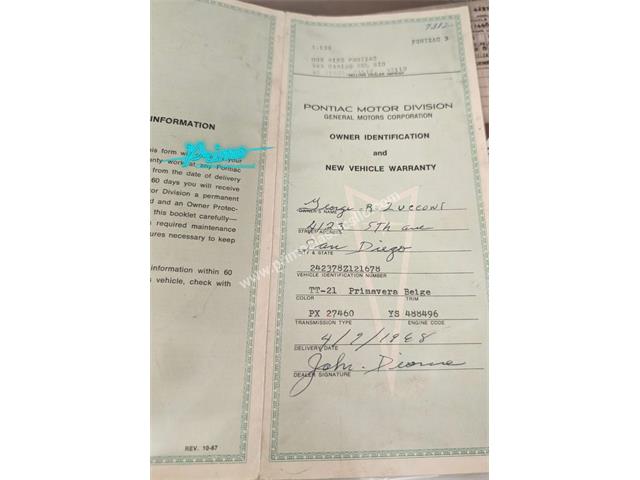 7312
PONTIAC 3
SELLING DEALER IMPRINT
INFORMATION
this form
your
work at any Pontiac
from the date of delivery
60 days you will receive
Division a permanent
and an Owner Protec-
this booklet carefully—
required maintenance
necessary to keep
information within 60
vehicle, check with
REV. 10-67
PONTIAC MOTOR DIVISION
GENERAL MOTORS CORPORATION
OWNER IDENTIFICATION
and
NEW VEHICLE WARRANTY
George R. Zucconi
OWNER'S NAME
4123 5th ave
STREET ADDRESS
San Diego
CITY & STATE
242378Z121678
VEHICLE IDENTIFICATION NUMBER
TT-21 Primavera Beige
COLOR TRIM
PX 27460 YS 488496
TRANSMISSION TYPE ENGINE CODE
4/9/1968
DELIVERY DATE
John Dionne
DEALER SIGNATURE